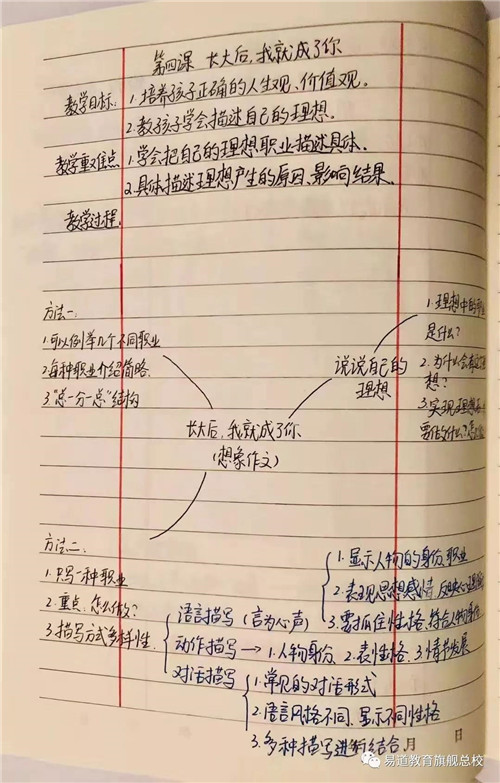 第四课 长大后,我就成了你
教学目标: 1.培养孩子正确的人生观、价值观。
2.教孩子学会描述自己的理想。
教学重难点: 1.学会把自己的理想职业描述具体。
2.具体描述理想产生的原因、影响结果。
教学过程:
方法一:
1.可以例举几个不同职业
2.每种职业介绍简略
3."总一分一总"结构
长大后,我就成了你
(想象作文)
说说自己的
理想
1.理想中的
是什么?
2.为什么会有
想?
3.实现理想
要做什么?
方法二:
1.只写一种职业
2.重点:怎么做?
3.描写方式多样性
语言描写(言为心声)
1.显示人物的身份,职业
2.表现思想感情,反映心理
3.要抓住性格,符合人物身份
动作描写→1.人物身份 2.表性格 3.情节发展
对话描写
1.常见的对话形式
2.语言风格不同、显示不同性格
3.多种描写进行结合
月 日
易道教育旗舰总校